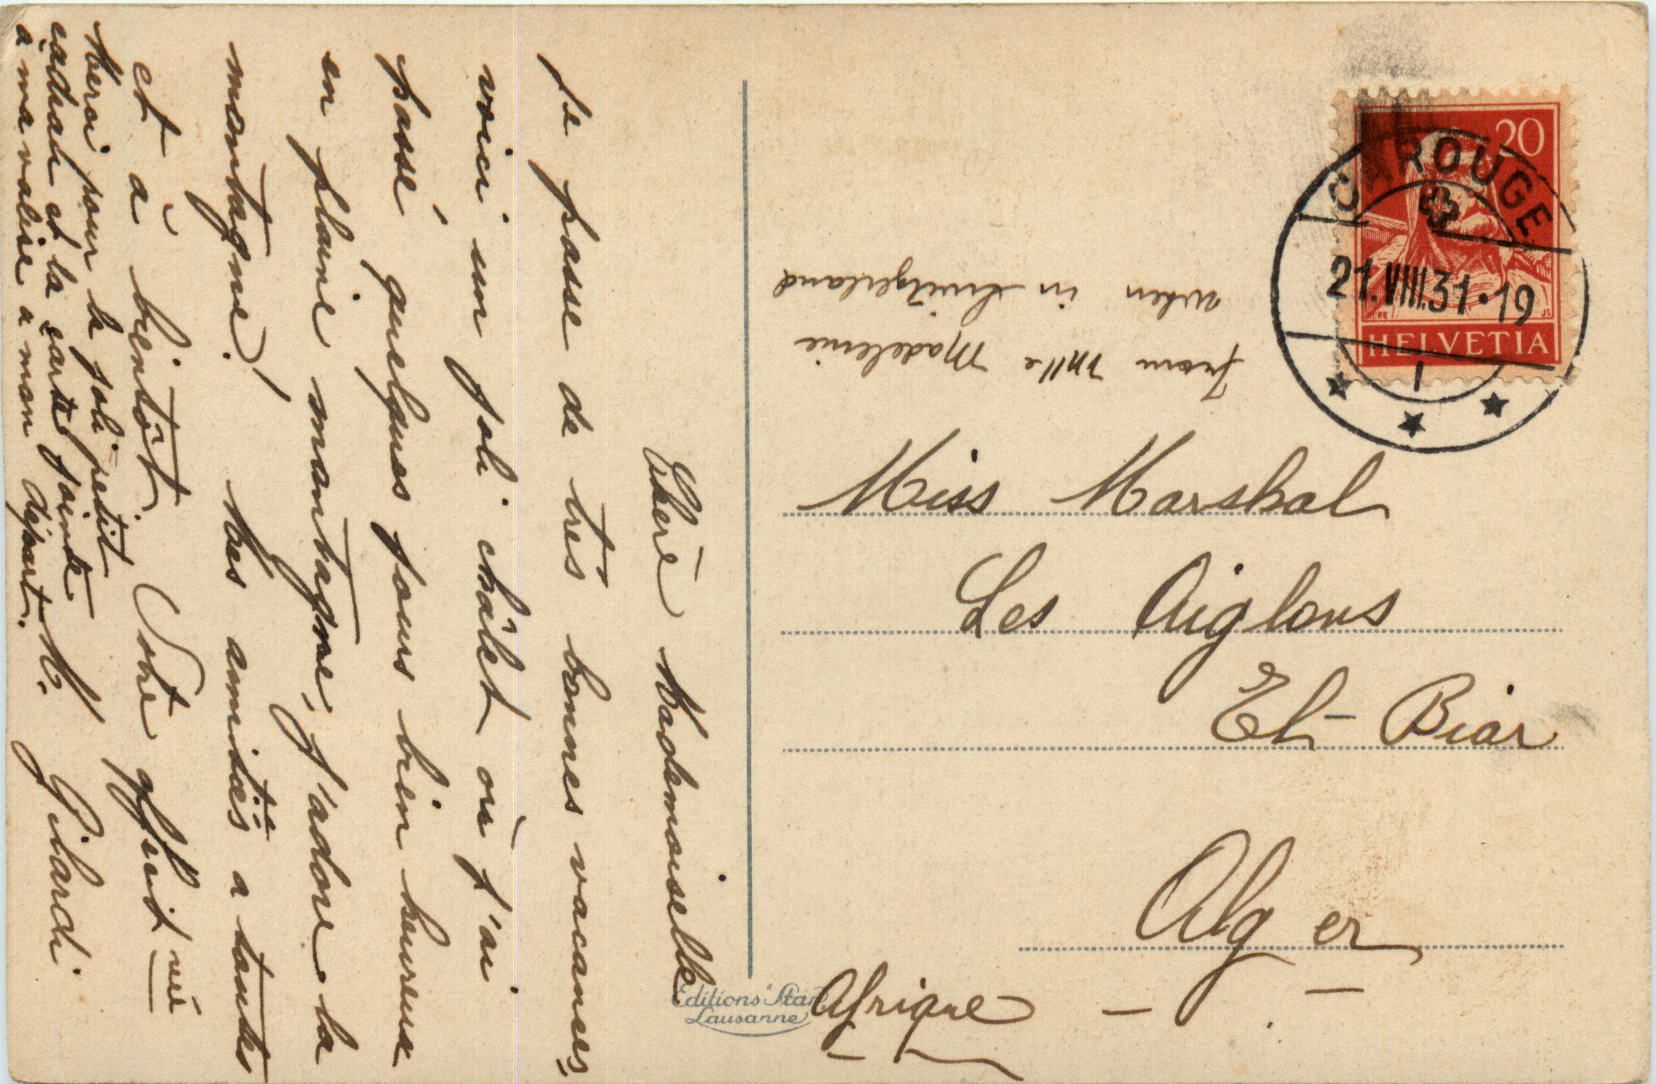 Chère Mademoiselle
Je passe de très bonnes vacances,
voici un joli châlet où j'ai
passé quelques jours bien heureux
en plaine montagne, j'adore la
montagne! Mes amitiés a toutes
et à bientôt. Votre
M. Gilardi
Merci pour la joli petit
cadeau et la carte jointe
à ma valise a mon départ.
from Mlle Madeleine
when in Switzerland
20
CAROUGE
21.VIII.31·19
1
HELVETIA
Miss Marshal
Les Aiglons
El-Biar
Alger
Afrique
Editions "Star"
Lausanne